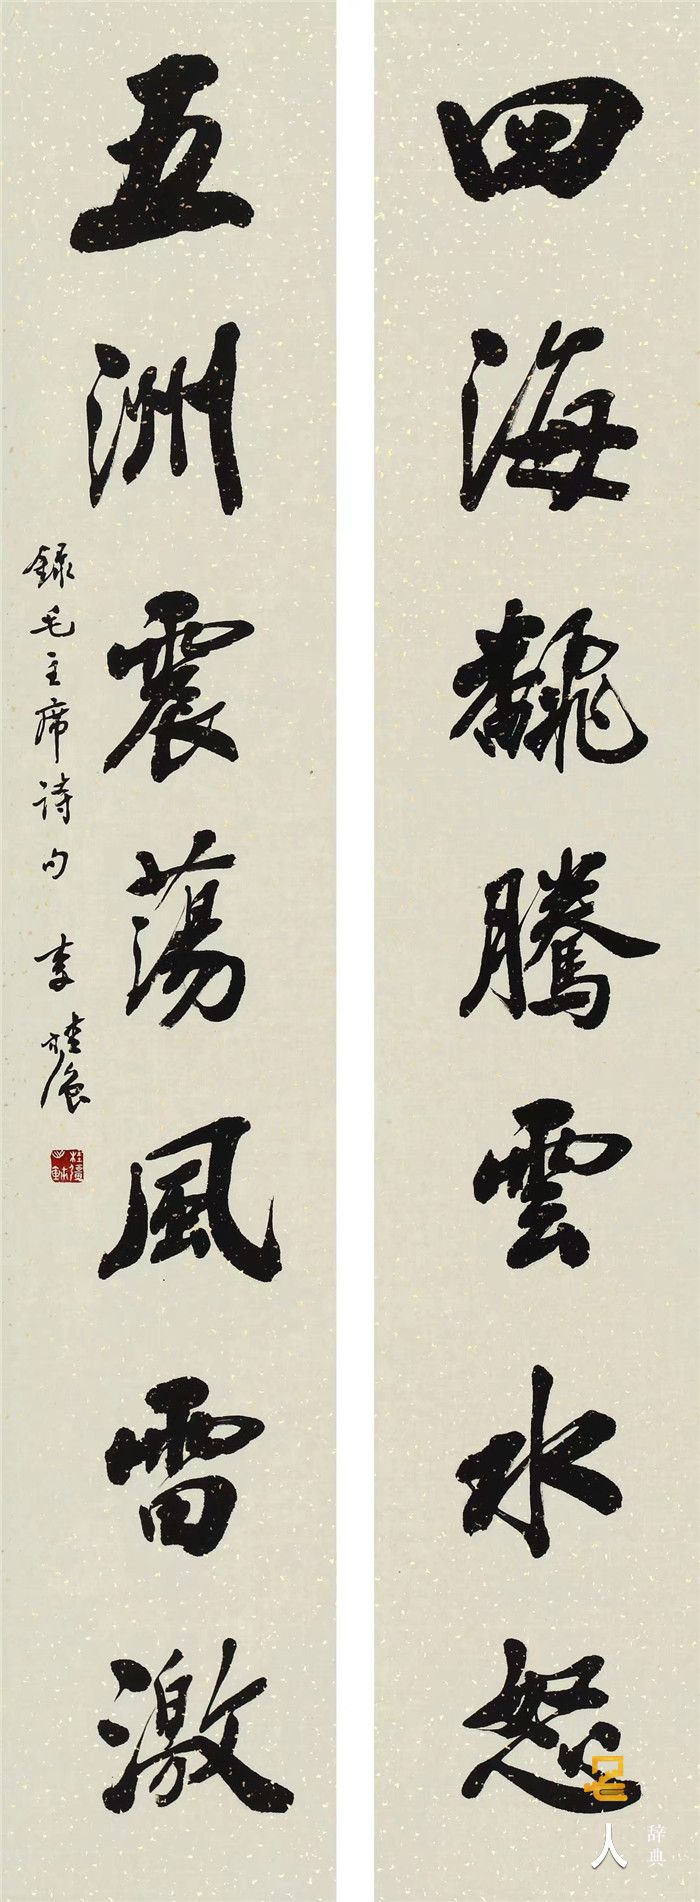 四海飜騰雲水怒
五洲震蕩風雷激
錄毛主席詩句 李
名人
辞典